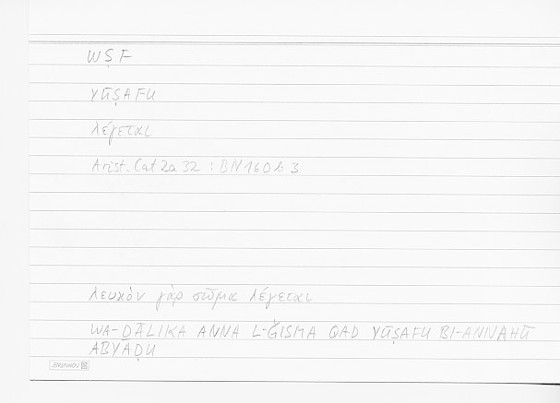 WṢF
YŪṢAFU
λέγεται
Arist. Cat 2a 32 : BN 160 b 3
λευκὸν γὰρ σῶμα λέγεται
WA-ḎĀLIKA ANNA L-ǦISMA QAD YŪṢAFU BI-ANNAHŪ
ABYAḌU